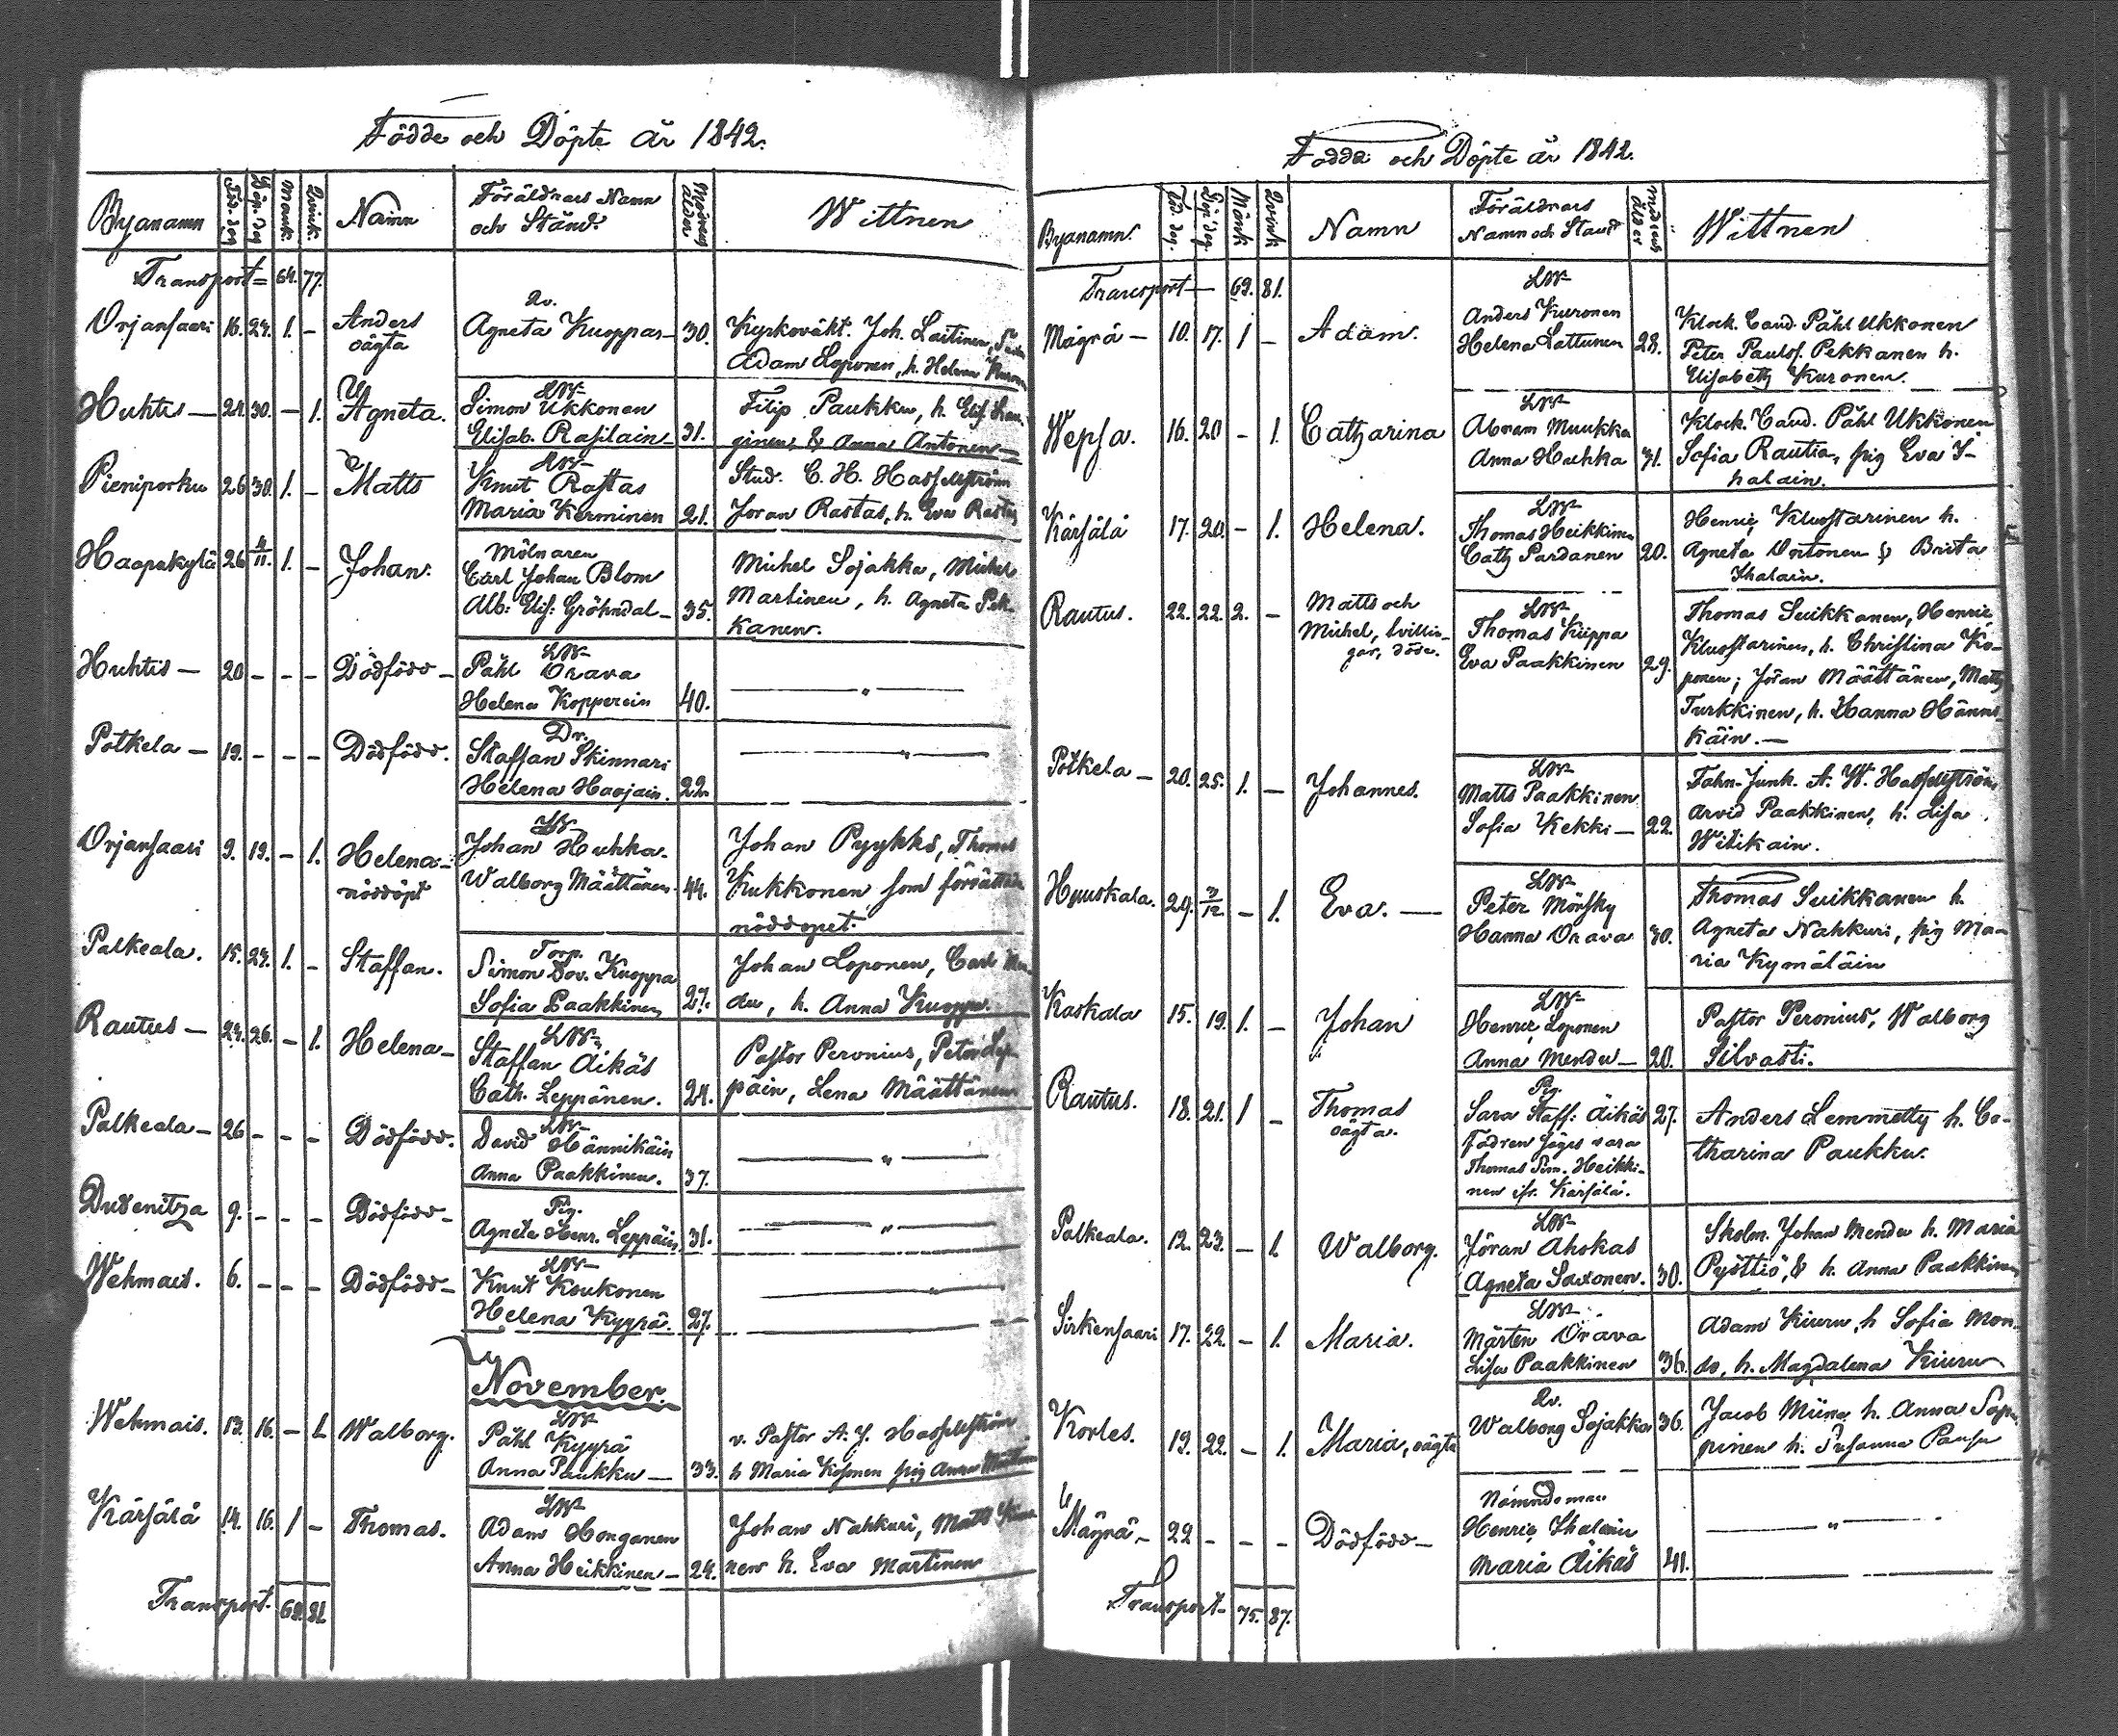 Födde och Döpte År 1842.
Byanamn Föd. dag Döp. dag Mank. Qvink. Namn Föräldrars Namn och Stånd. Modrens ålder Wittnen
Transport = 64. 77.
Qv.
Orjansaari 16. 24. 1. – Anders Agneta Kuoppar – 30. Kyrkovákt. Joh. Laitinen,
oägta Adam Loponen, h. Helena Kuronen
LW
Huhtis — 24. 30. – 1. Agneta. Simon Ukkonen Filip Paukku, h. Elis.
Elisab. Rasilain – 31. ginen, & Anna Antonen —
LW
Pieniporku 26 30. 1. – Matts Knut Rastas Stud. C. H. Hasselström
Maria Kerminen 21. Joran Rastas, h. Eva Rastas
Mölnaren
Haapakylä 26 4/11. 1. – Johan. Carl Johan Blom Michel Sojakka, Michel
Alb: Elis: Gröhndal – 35. Martinen, h. Agneta Pek-
kanen.
LW
Huhtis — 20 – – – Dödfödd – Påhl Orava
Helena Kopperoin 40. — " —
Dr.
Potkela — 19. – – – Dödfödd. Staffan Skinnari — " —
Helena Haajain. 22.
LW
Orjansaari 9. 19. – 1. Helena – Johan Huhka. Johan Pyykkö, Thomas
nöddöpt Walborg Määttänen 44. Kukkonen som förrättade
nöddopet.
Torp.
Palkeala. 15. 24. 1. – Staffan. Simon Dav. Kuoppa Johan Loponen, Carl Men-
Sofia Paakkinen 27. du, h. Anna Kuoppa.
LW
Rautus — 24. 26. – 1. Helena – Staffan Äikäs Pastor Peronius, Peter Lep-
Cath. Leppänen. 24. päin, Lena Määttänen
LW
Palkeala – 26 – – – Dödfödd. David Hännikäin — " —
Anna Paakkinen. 37.
Pig.
Dudenitza 9. – – – Dödfödd – Agneta Henr. Leppäin 31. — " —
LW
Wehmais. 6. – – – Dödfödd – Knut Koukonen
Helena Kyyrä. 27.
November.
LW
Wehmais. 13. 16. – 1. Walborg. Påhl Kyyrä v. Pastor A. J. Hasselström
Anna Paukku — 33. h Maria Kosonen pig Anna
LW
Kärsälä 14. 16. 1 – Thomas. Adam Honganen Johan Nahkuri, Matts
Anna Heikkinen – 24. nen h. Eva Martinen
Transport. 69. 81.
Födde och Döpte år 1842.
Byanamn. Föd. dag. Döp. dag. Mänk Qvink Namn Föräldrars Namn och Stånd Modrens ålder Wittnen
Transport — 69. 81.
LW
Mägrä – 10. 17. 1 – Adam. Anders Kuronen Klock. Cand. Påhl Ukkonen
Helena Lattunen 28. Peter Paulsf. Pekkanen h.
Elisabeth Kuronen.
LW
Wepsa. 16. 20 – 1. Catharina Abram Muukka Klock. Cand. Påhl Ukkonen
Anna Huhka 31. Sofia Rautia, pig Eva I-
halain.
LW
Kärsälä 17. 20. – 1. Helena. Thomas Heikkinen Henric Kluostarinen h.
Cath Pardanen 20. Agneta Ontonen & Brita
Ihalain.
LW
Rautus. 22. 22. 2. – Matts och Thomas Kiippa Thomas Suikkanen, Henric
Michel, tvillin- Eva Paakkinen 29. Kluostarinen, h. Christina Ko-
gar, döde. ponen; Jöran Määttänen, Matts
Turkkinen, h. Hanna Hänni-
käin. —
LW
Potkela – 20. 25. 1. – Johannes. Matts Paakkinen Fahn-Junk. A. W. Hasselström,
Sofia Kekki – 22. Arvid Paakkinen, h. Lisa
Witikain.
LW
Huuskala. 29. /12. – 1. Eva. — Peter Mörsky Thomas Suikkanen h.
Hanna Orava 30. Agneta Nahkuri, pig Ma-
ria Kymäläin
LW
Kaskala 15. 19. 1. – Johan Henric Loponen Pastor Peronius, Walborg
Anna Mendu – 20. Silvasti.
Pig.
Rautus. 18. 21. 1 – Thomas Sara Staff: Äikäs 27. Anders Lemmetty h. Ca-
oägta. Fadren säges vara tharina Paukku.
Thomas Sim. Heikki-
nen ifr. Kärsälä.
LW
Palkeala. 12. 23. – 1. Walborg. Jöran Ahokas Skolm. Johan Mendu h. Maria
Agneta Saxonen. 30. Pyöttiö, & h. Anna Paakkinen
LW
Sirkensaari 17. 22. – 1. Maria. Mårten Orava Adam Kiuru, h Sofia Mon-
Lisa Paakkinen 36. to, h. Magdalena Kiuru
Qv.
Korles. 19. 22. – 1. Maria, oägta Walborg Sojakka 36. Jacob Miina h. Anna Sop-
pinen h. Susanna Pausu
Nämndeman
Mägrä – 22 – – – Dödfödd – Henric Ihalain — " —
Maria Äikäs 41.
Transport – 75. 87.